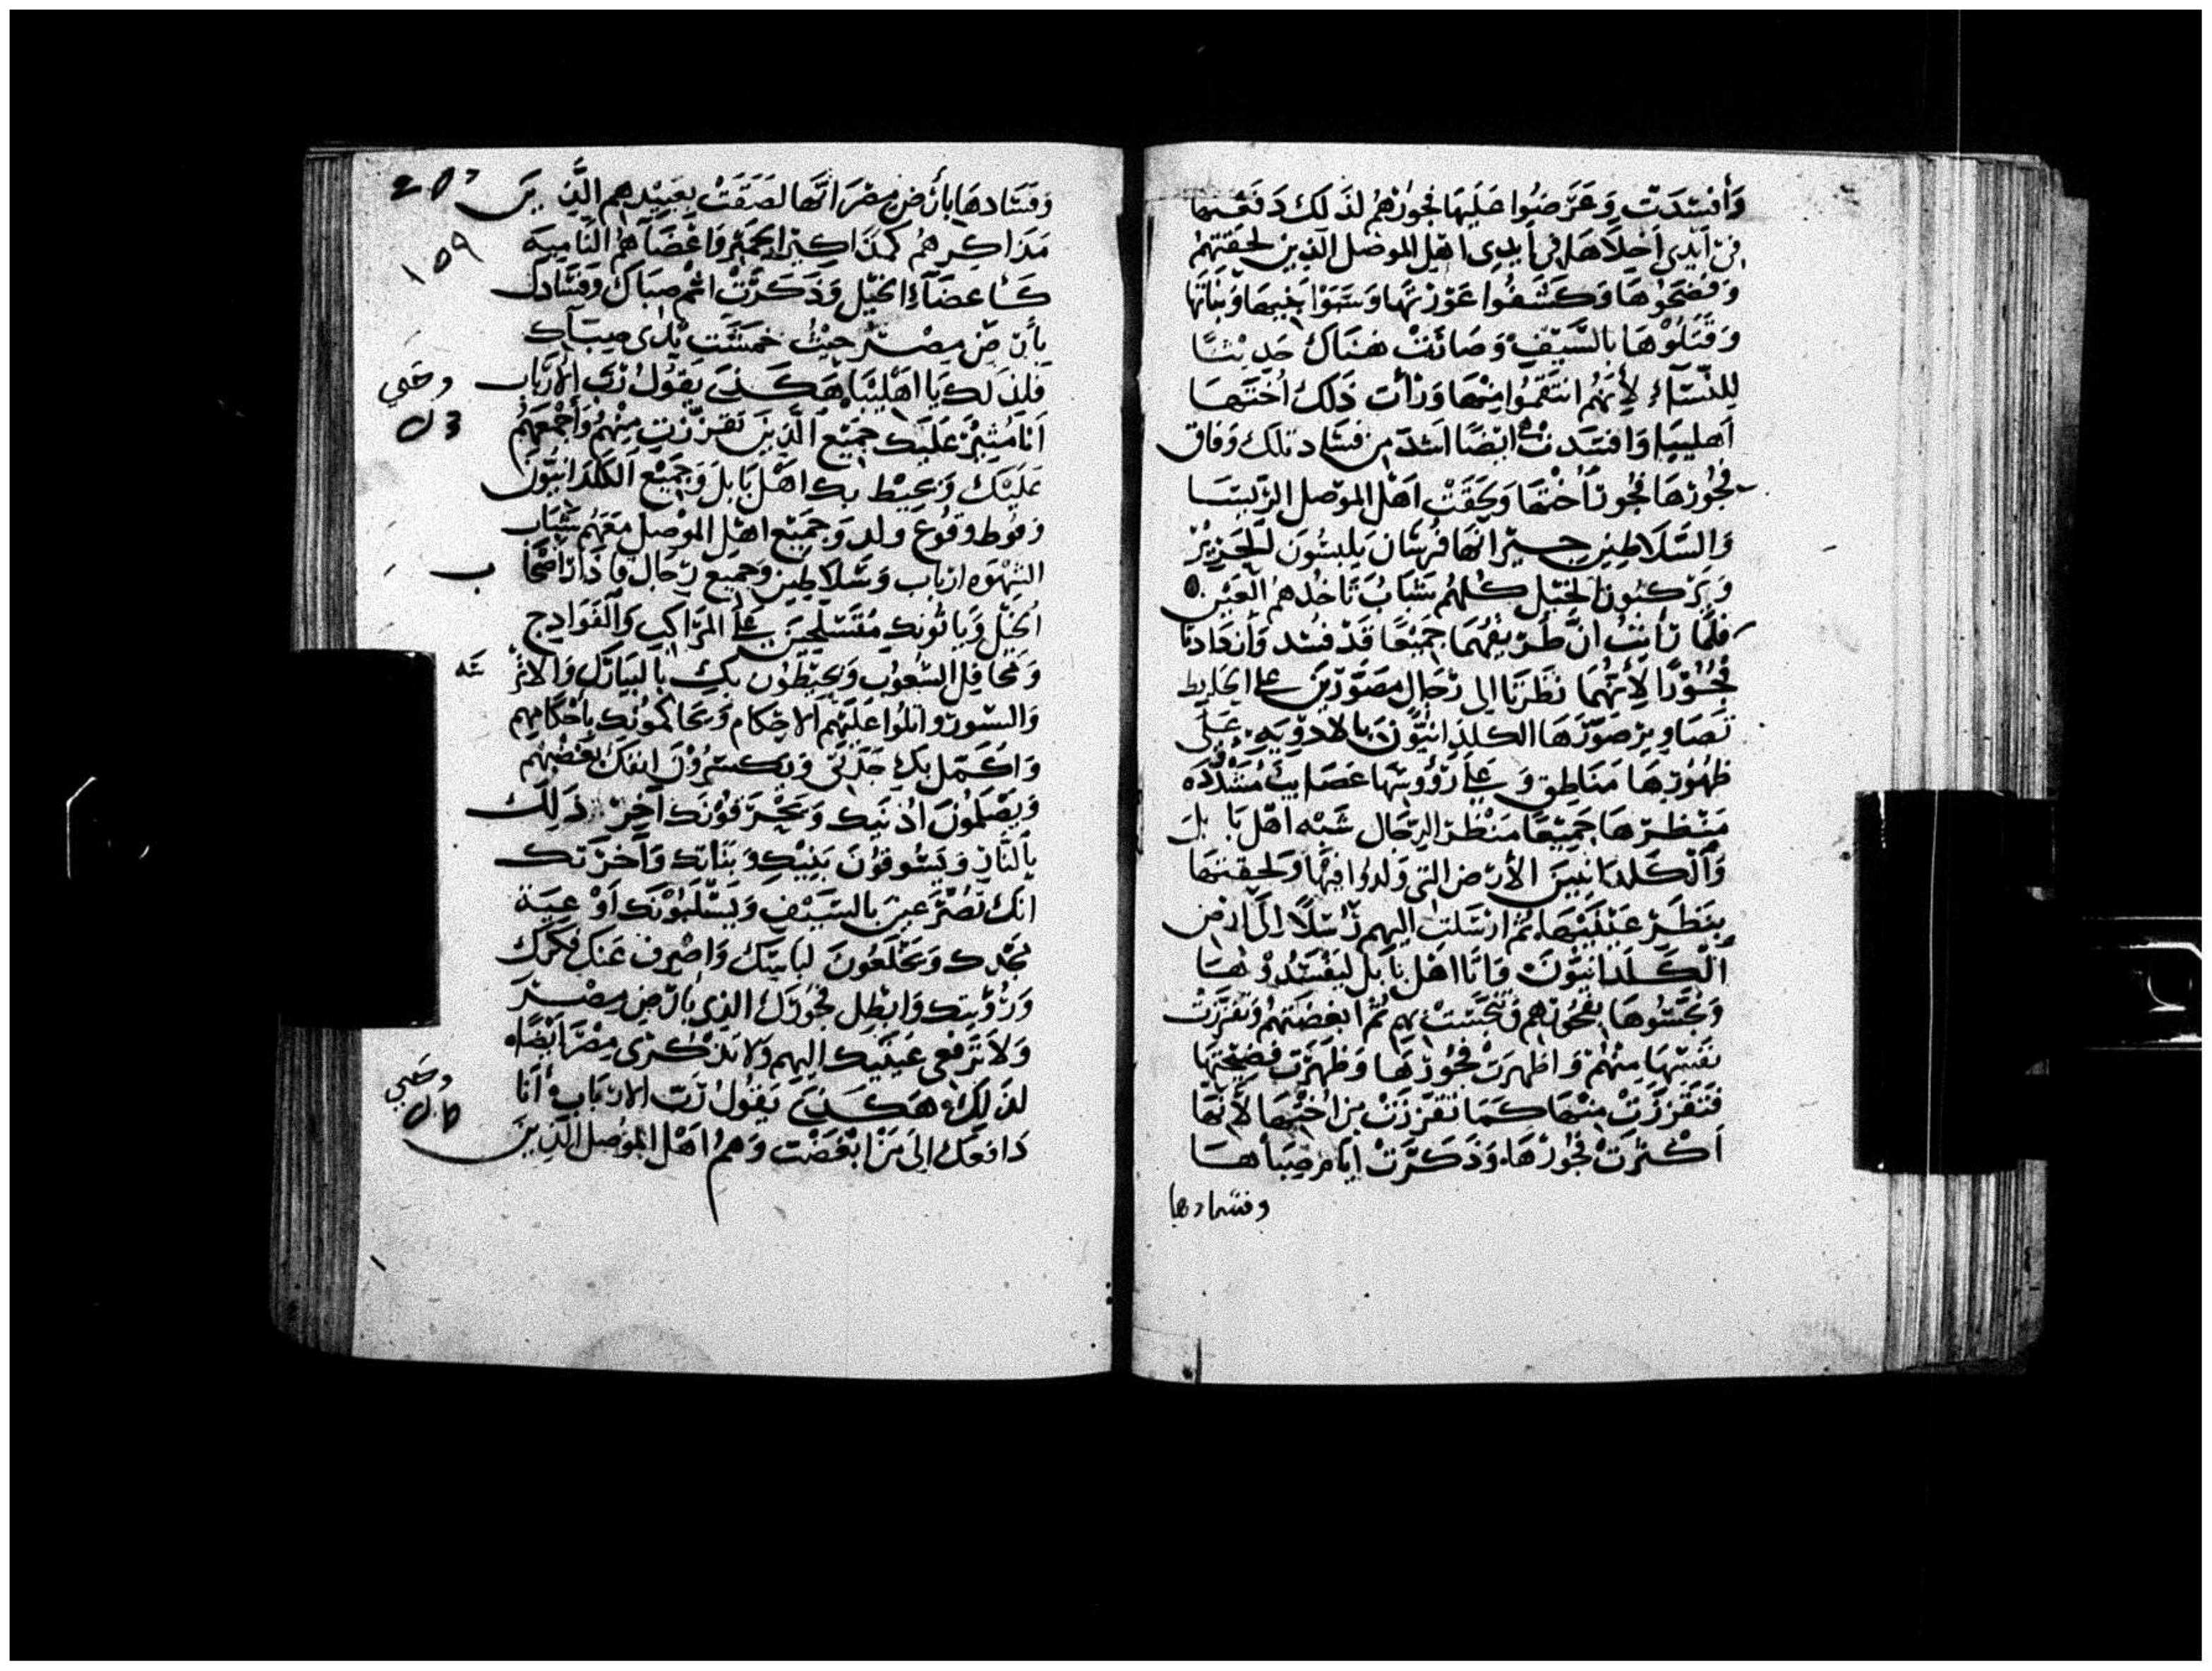 وَأفسَدَت وَعَرَضوا عَلَيهَا فجُورَهُم لذَلكَ دَفعتهَا
في أيدي أخلاهَا في أيدي أهل الموصل الذين لحقتهُم
وَفضَحُوهَا وَكشَفُوا عَوْرتهَا وَسَبَوْا بَنيهَا وَبنَاتهَا
وَقَتلُوْهَا بالسَّيفِ وَصَارَتْ هنَاكَ حَديْثًا
لِلنّسَاءِ لأنهُم انتقمُوا منهَا وَرَأت ذَلكَ أختهَا
أهليبَا وَافسَدت أيضًا أشدّ من فسَاد تلكَ وَفاق
فجُورُهَا فجُورَ أختهَا وَلحقَتْ أهْل الموصل الرؤسَا
وَالسَّلاطين جيرانهَا فرسَان يَلبسُونَ الحَرِيْر
وَيَركبُونَ الخيْل كلهُم شَبَابٌ تَاخُدهُم العَيْن
فلمَّا رَأيتُ أنَّ طريقهُمَا جَميْعًا قَدْ فسَد وَازدَادتا
فُجُوْرًا لأنهُمَا نَظرَتا إلى رجَالٍ مصَوَّرِين على الحَايط
تصَاوير صَوّرَهَا الكلدَانيُّونَ بالادويَه عَلَى
ظهُورهَا مَنَاطق وَعَلى رؤوسهَا عَصَايب مُشَدَّدَه
مَنْظرهَا جَميعًا مَنْظر الرجَال شبْه اهْل بَابلَ
وَالْكلدَانيينَ الأرض التي وَلدُوا فيهَا وَلحقتهمَا
بنَظَرِ عَيْنَيْهَا ثُم ارْسَلت اليهم رُسُلاً إلَى ارض
الْكَلَدانيّونَ وَاتَا اهْل بَابل ليَفسدُوْهَا
وَنجّسُوهَا بفجورهم وَتنجسَتْ بهِم ثُمّ ابغضَتهُم وَتقزّزَت
نَفسُهَا منهُم وَاظهرَتْ فجُوْرَهَا وَظهَرَت فضيحتهَا
فتَقَزّزَتْ منهَا كمَا تَقَزّزَتْ من اختهَا لأنهَا
اكْثرَتْ فُجُوْرَهَا وَذَكَرَتْ ايَّام صِبَاهَا
وفسادها
وَفسَادهَا بأرْضِ مصْرَ انَّهَا لصَقَتْ بعَبيْدهم الَّذِينَ
مَذاكيرهُم كمذَاكيْر الحَميْر وَاعْضَآءهُم النّاميه
كَاعضَآءِ الخيْل وَذكَرْتِ اثم صبَاك وَفسَادك
بأرْضِ مِصْر حيْثُ خمشت ثدى صبَاك
فلذلك يَا اهْليْبَا هَكَذَى يَقُولُ رَبّ الأربَاب
انَا مُثيرٌ عَلَيك جَميْع الَّذينَ تقزّزتِ منْهُم وَأجْمعَهُم
عَليْكَ وَيحيْط بك اهْل بَابلَ وَجَميْع الكلدَانيّون
وَفوط وَقوع ولد وَجَميْع اهْل الموْصل مَعَهُم شَبَاب
الشهْوَه اربَاب وَسَلاطين وَجميْع رجَال
الخيْل وَيَاتُونك مُتسَلحينَ عَلى المرَاكب وَالهَوَادج
وَمحَافل الشعُوب وَيحيْطُون بك بالبيَارَك وَالاتْرسَه
وَالسور وَاتلُوا عَلَيْهم الاحْكام وَيحَاكمُونك بأحْكامهم
وَاكمّل بك حَردتى وَيكسرُوْن انفك بغضبهُم
وَيصْلمُونَ أذنيك وَيحْرقُوْنك آخر ذَلك
بالنَّارِ وَيسُوقُونَ بَنيْك وَبنَاتك وَآخرَتك
انك تُصْرَعينَ بالسَيْف وَيسْلبُوْنك اوْعيَة
مجْدك وَيخْلعُونَ لبَاسَك وَاصْرف عنْك مكرَك
وَرؤيتك وَابْطل فجُوْرَك الذى بأرْض مصْرَ
وَلا تَرفعى عَيْنيك اليهم وَلا تذكُرى مصْرَ ايْضًا
لذَلك هَكَذَى يَقُولُ رَبّ الاربَاب أنَا
دَافعك الىَ مَن ابْغضْت وَهُم اهْل الموْصل الذينَ
١٥٩